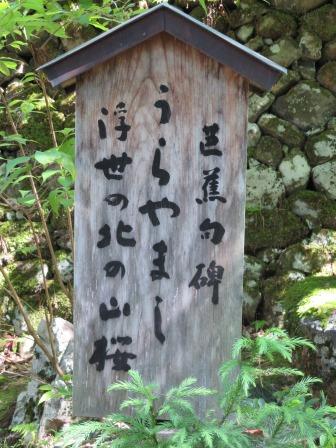 芭蕉句碑
うらやまし
浮世の北の山桜